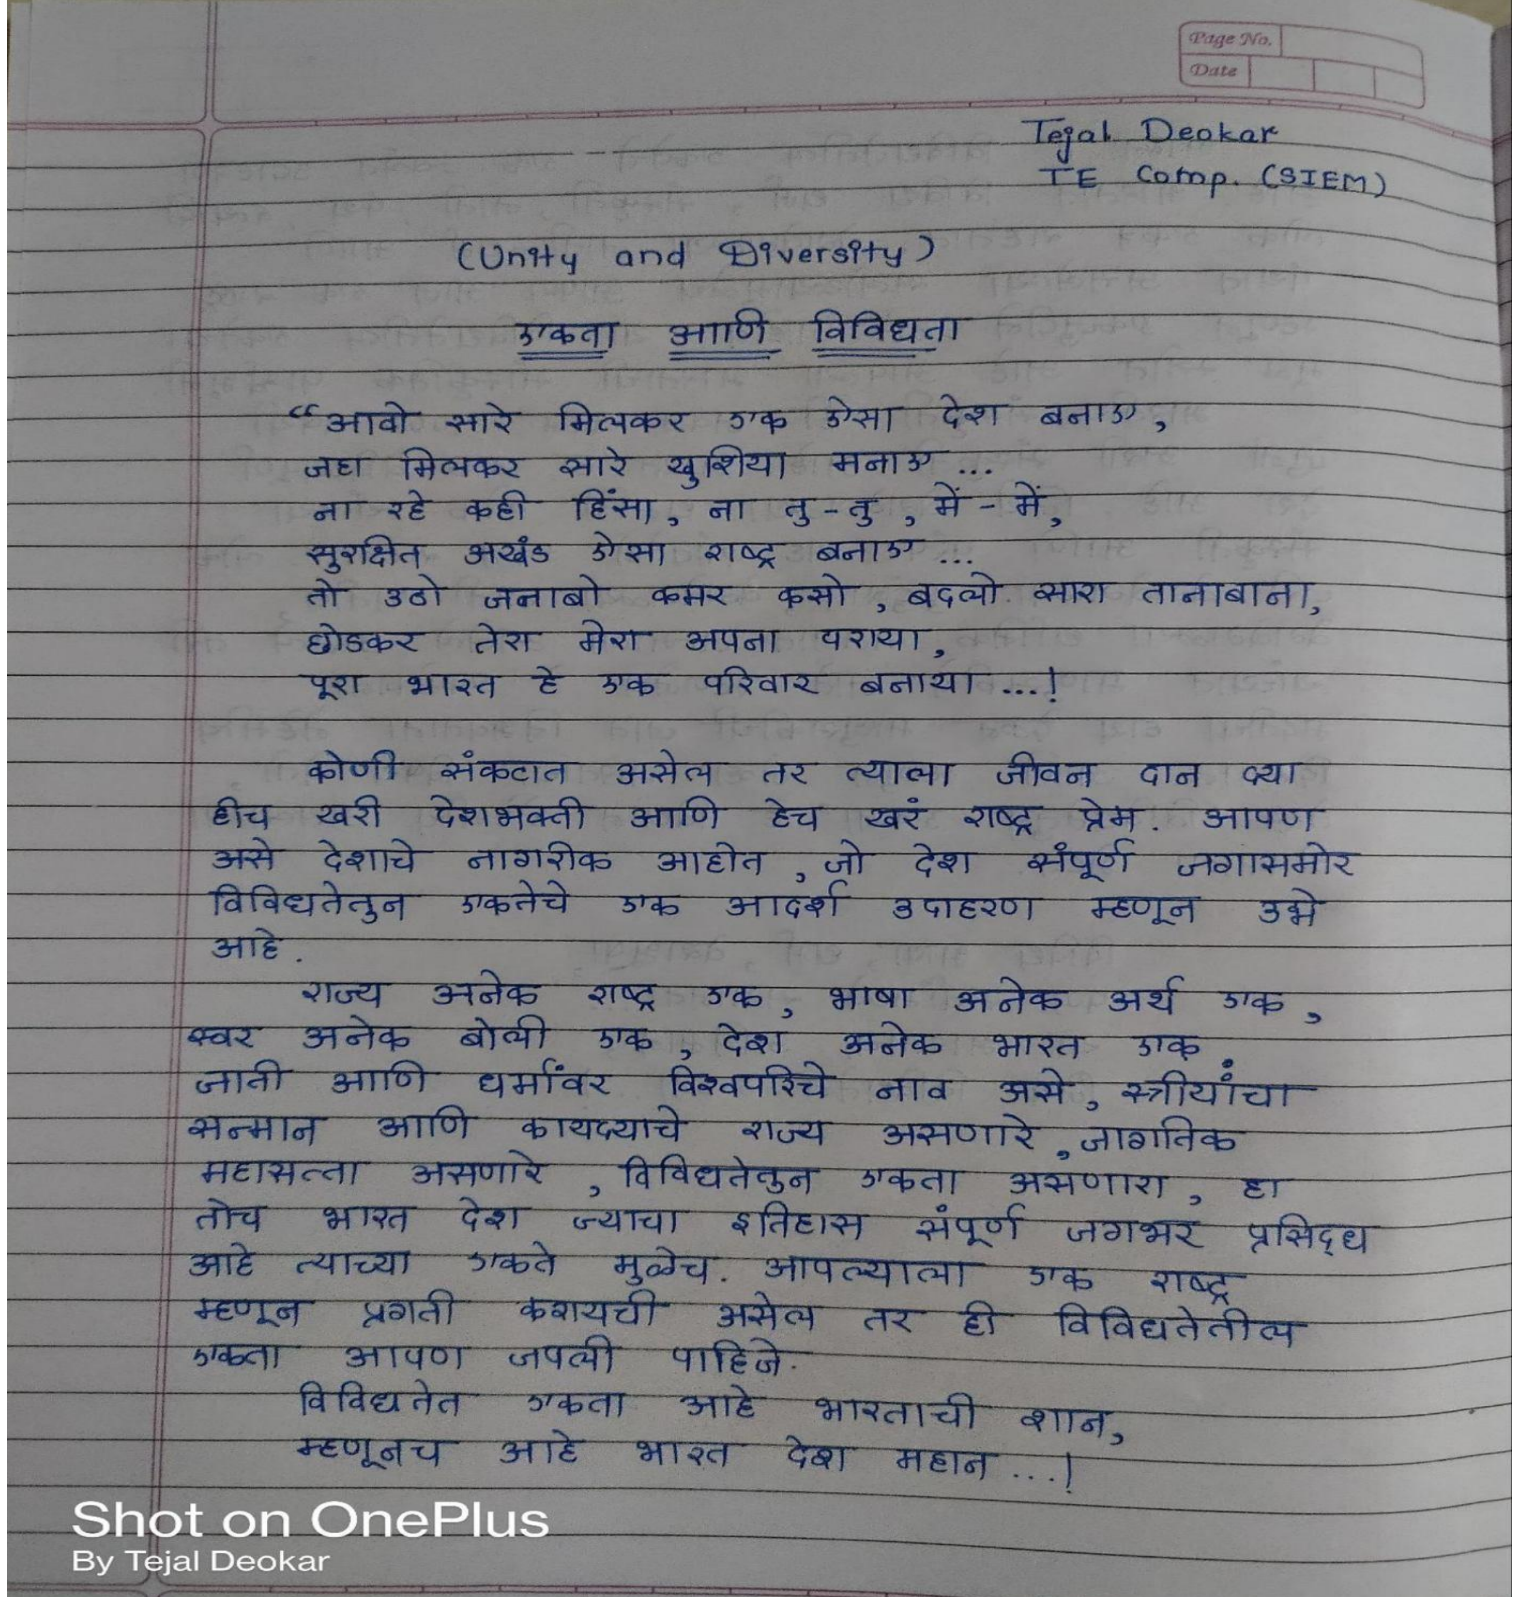 Page No.
Date
Tejal Deokar
TE Comp. (SIEM)
(Unity and Diversity)
एकता आणि विविधता
“आवो सारे मिलकर एक ऐसा देश बनाए,
जहा मिलकर सारे खुशिया मनाए ...
ना रहे कही हिंसा, ना तु - तु, में - में,
सुरक्षित अखंड ऐसा राष्ट्र बनाए ...
तो उठो जनाबो कमर कसो, बदलो सारा तानाबाना,
छोडकर तेरा मेरा अपना पराया,
पूरा भारत हे एक परिवार बनाया ...!
कोणी संकटात असेल तर त्याला जीवन दान द्या
हीच खरी देशभक्ती आणि हेच खरं राष्ट्र प्रेम. आपण
असे देशाचे नागरीक आहोत, जो देश संपूर्ण जगासमोर
विविधतेतुन एकतेचे एक आदर्श उदाहरण म्हणून उभे
आहे.
राज्य अनेक राष्ट्र एक, भाषा अनेक अर्थ एक,
स्वर अनेक बोली एक, देश अनेक भारत एक.
जाती आणि धर्मांवर विश्वपरिचे नाव असे, स्त्रीयांचा
सन्मान आणि कायद्याचे राज्य असणारे, जागतिक
महासत्ता असणारे, विविधतेतुन एकता असणारा, हा
तोच भारत देश ज्याचा इतिहास संपूर्ण जगभर प्रसिद्ध
आहे त्याच्या एकते मुळेच. आपल्याला एक राष्ट्र
म्हणून प्रगती करायची असेल तर ही विविधतेतील
एकता आपण जपली पाहिजे.
विविधतेत एकता आहे भारताची शान,
म्हणूनच आहे भारत देश महान ...!
Shot on OnePlus
By Tejal Deokar